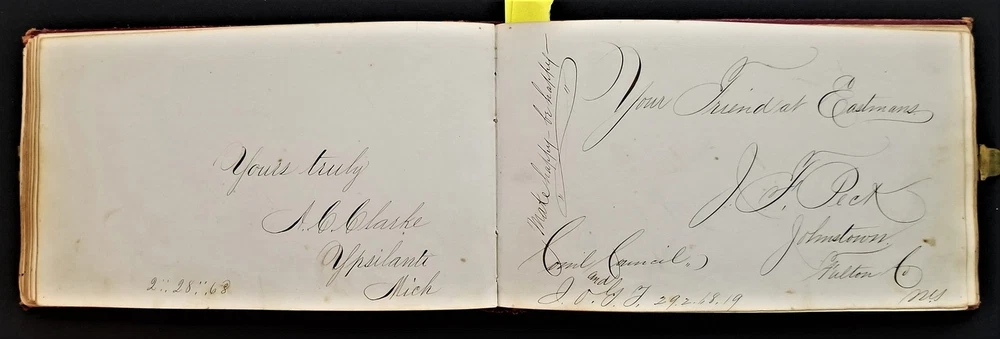 Yours truly
A. C. Clarke
Ypsilanti
Mich
2::28::63
Make happy - be happy -
Your Friend at Eastmans
J. F. Peck
Johnstown,
Fulton Co
Coml Council.
and
I. O. G. T. 292.68.19